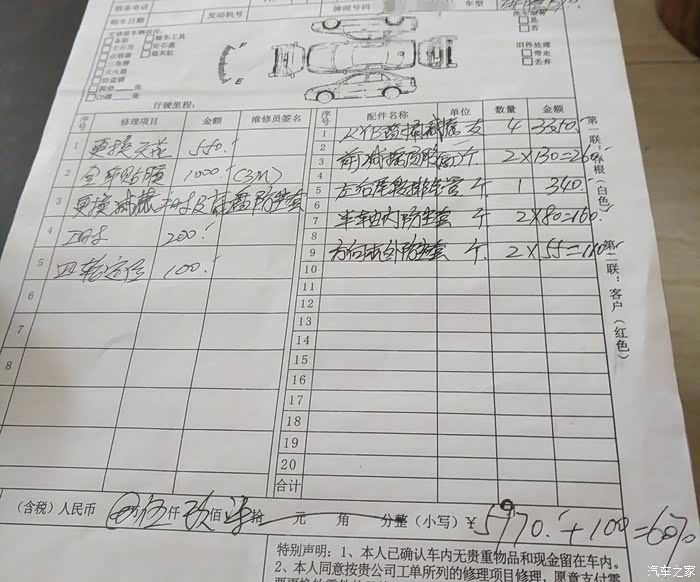 联系电话
牌照号码
车型
购车日期
发动机号
洗车服务
是
否
交修前车辆状况:
备胎
随车工具
千斤顶
轮芯盖
点烟器
烟灰缸
三角牌
灭火器
防盗锁
脚垫 张
CD碟 张
E
旧件处理
带走
丢弃
行驶里程:
序号 修理项目 金额 维修员签名
1 更换天花 550.
2 全车贴膜 1000. (3M)
3 更换减震
4 工时 200.
5 四轮定位 100.
6
7
8
序号 配件名称 单位 数量 金额
1 KYB 减震 支 4
2 前减震 个 2×130=260.
3
4
5 左右 个 1 340.
6
7 半车由内防尘套 个 2×80=160.
8
9 左右 外防尘套 个 2×55=110
10
11
12
13
14
15
16
17
18
19
20
合计
第一联:存根(白色)
第二联:客户(红色)
(含税)人民币 万伍仟玖佰柒拾 元 角 分整 (小写)¥5970.+100=6070
特别声明:1、本人已确认车内无贵重物品和现金留在车内。
2、本人同意按贵公司工单所列的修理项目修理,愿意支付
汽车之家